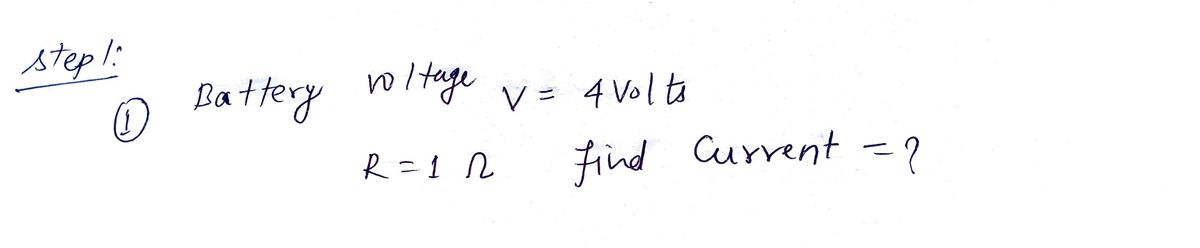 step 1:
① Battery voltage V = 4 Volts
R = 1 Ω find Current = ?